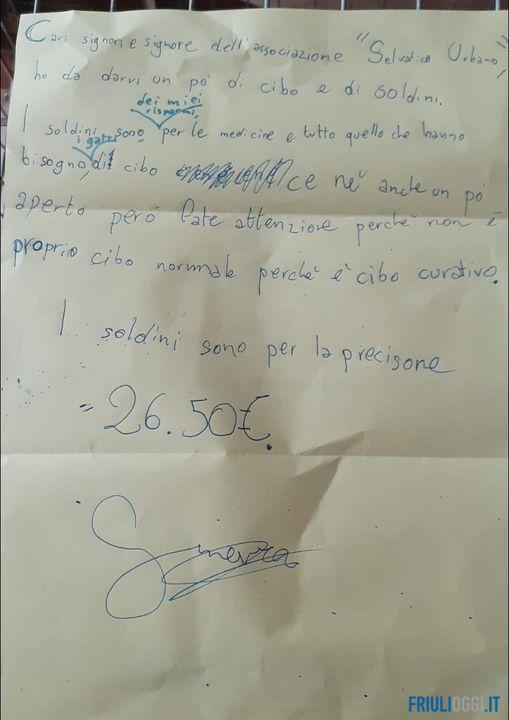 Cari signori e signore dell'associazione "Selvatico Urbano",
ho da darvi un pò di cibo e di soldini.
dei miei
risparmi,
I soldini sono per le medicine e tutto quello che hanno
i gatti
bisogno, di cibo ce né anche un pò
aperto però fate attenzione perchè non è
proprio cibo normale perchè è cibo curativo.
I soldini sono per la precisone
= 26.50€.
Ginevra
FRIULIOGGI.IT